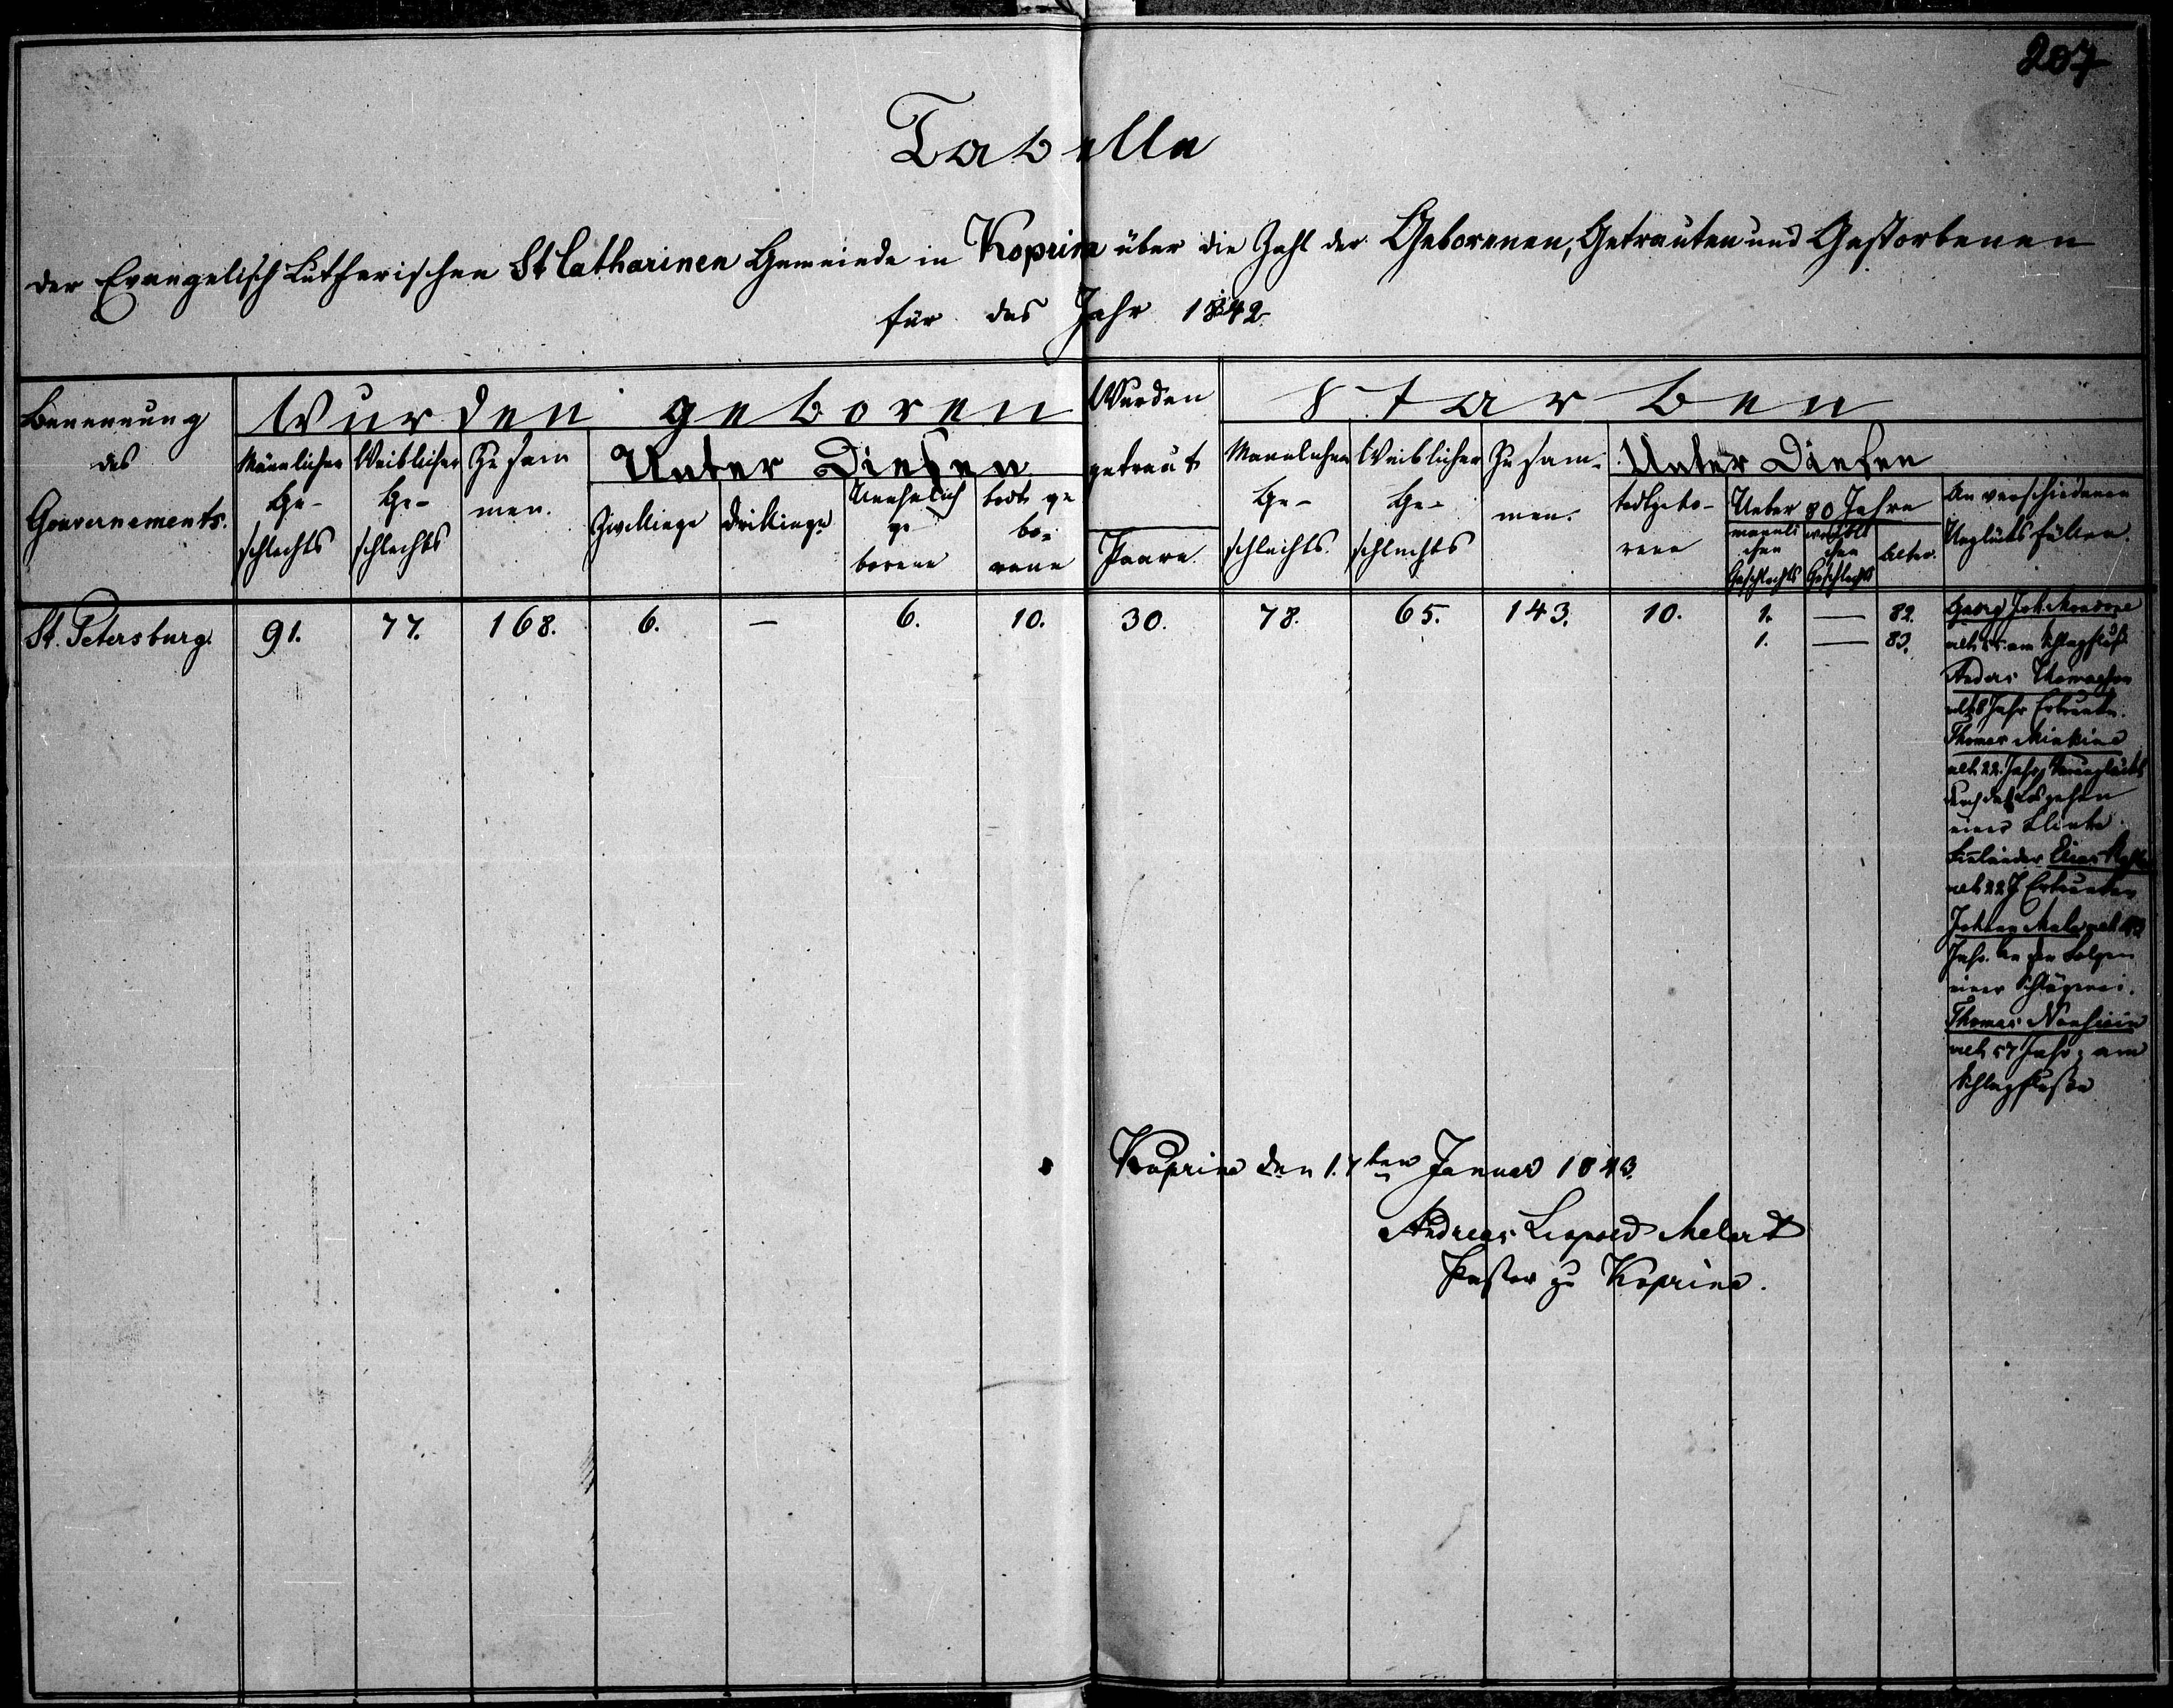 207
Tabelle
der Evangelisch Lutherischen St Catharinen Gemeinde in Koprina über die Zahl der Geborenen, Getrauten und Gestorbenen
für das Jahr 1842.
Benennung
des
Gouvernements.
Wurden geboren
Männlichen
Ge-
schlechts
Weiblichen
Ge-
schlechts
Zusam
men.
Unter Diesen
Zwillinge
Drillinge
Unehelich
ge
borene
todt ge
bo-
rene
Wurden
getraut
Paare
Starben
Mannlichen
Ge-
schlechts.
Weiblichen
Ge-
schlechts
Zusam-
men.
Unter Diesen
todtgebo-
rene
Ueber 80 Jahre
mannli
chen
Geschlechts
weibli
chen
Geschlechts
Alter.
An verschiedenen
Unglücksfällen.
St. Petersburg. 91. 77. 168. 6. — 6. 10. 30. 78. 65. 143. 10. 1. — 82.
1. — 83.
Georg Joh.
alt 55. am Schlagfluß
Anders Thomasson
alt 8 Jahr Ertrunken.
Thomas
alt 22. Jahr, Verunglückt
durch das Losgehen
einer Flinte
Finländer Elias
alt 22 J Ertrunken
Johann alt
Jahr. An den Folgen
einer Schlägerei.
Thomas
alt 57 Jahr, am
Schlagflusse
Koprina den 17ten Januar 1843.
Andreas Leopold Melart
Pastor zu Koprina.